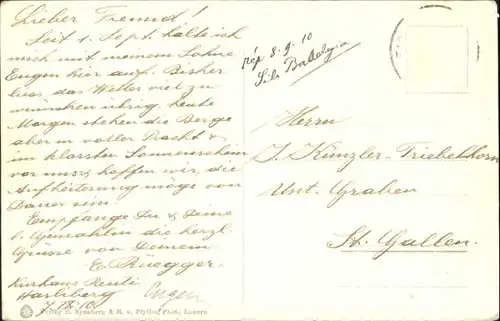 Lieber Freund!
Seit 1. Sept. halte ich
mich mit meinem Sohne
Eugen hier auf. Bisher
liess das Wetter viel zu
wünschen übrig, heute
Morgen stehen die Berge
aber in voller Pracht &
im klarsten Sonnenschein
vor uns & hoffen wir, die
Aufheiterung möge von
Dauer sein.
Empfange Du & Deine
l. Gemahlin die herzl.
Grüsse von Deinem
E. Rüegger.
Kurhaus Reuti
Hasliberg
7. IX. 10.
Eugen
rép 8-9.10
Herrn
J. Künzler-Triebelhorn
Unt. Graben
St. Gallen.
Verlag E. Synnberg & R. v. Pfyffer, Phot., Luzern